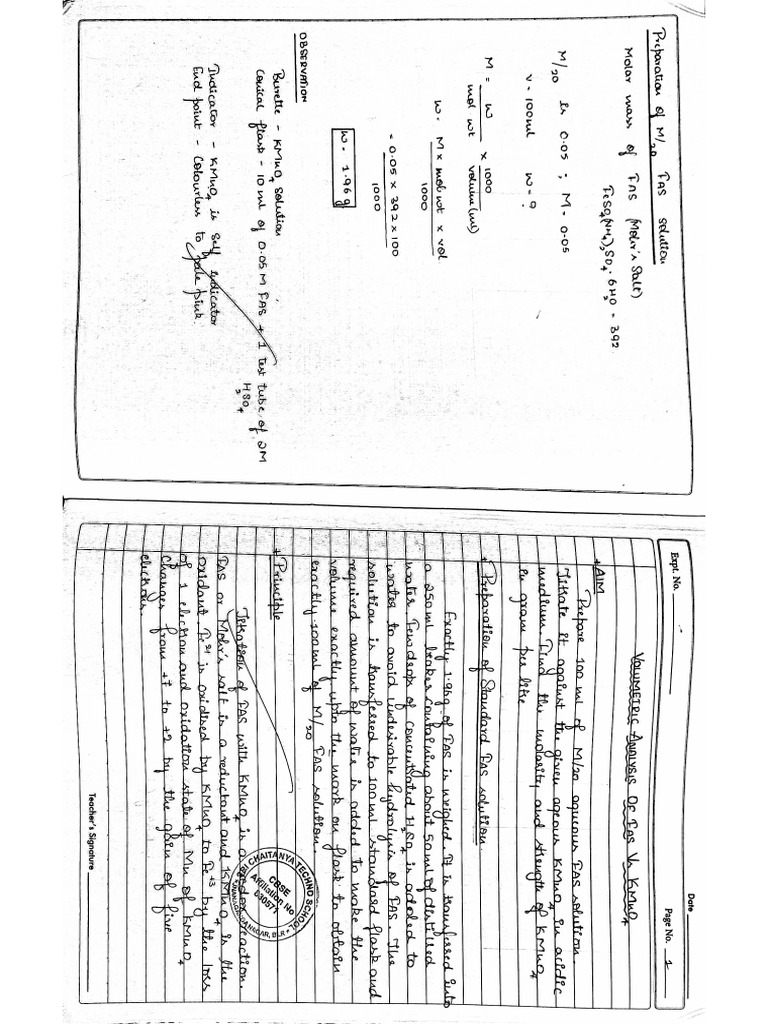 Preparation of M/20 FAS solution
Molar mass of FAS (Mohr's Salt)
FeSO4(NH4)2SO4·6H2O = 392
M/20 is 0.05 ; M = 0.05
V = 100ml W = ?
M = W / mol wt × 1000 / volume(ml)
W = M × mol wt × vol / 1000
= 0.05 × 392 × 100 / 1000
W = 1.96g
OBSERVATION
Burette - KMnO4 solution
Conical flask - 10 ml of 0.05 M FAS + 1 test tube of 2M H2SO4
Indicator - KMnO4 is self indicator
End point - Colourless to pale pink.
Date
Expt. No.
Page No. 1
VOLUMETRIC ANALYSIS OF FAS VS KMnO4
+ AIM
Prepare 100 ml of M/20 aqueous FAS solution.
Titrate it against the given aqeous KMnO4 in acidic
medium. Find the molarity and strength of KMnO4
in gram per litre
+ Preparation of Standard FAS solution.
Exactly 1.96g of FAS is weighed. It is transferred into
a 250ml beaker containing about 50ml of distilled
water. Few drops of concentrated H2SO4 is added to
water to avoid undesirable hydrolysis of FAS. The
solution is transferred to 100ml standard flask and
required amount of water is added to make the
volume exactly upto the mark on flask to obtain
exactly 100ml of M/20 FAS solution.
+ Principle
Titration of FAS with KMnO4 is a redox reaction.
FAS or Mohr's salt is a reductant and KMnO4 is the
oxidant. Fe2+ is oxidised by KMnO4 to Fe+3 by the loss
of 1 electron and oxidation state of Mn of KMnO4
changes from +7 to +2 by the gain of five
electrons.
SRI CHAITANYA TECHNO SCHOOL
CBSE
Affiliation No
830571
Teacher's Signature